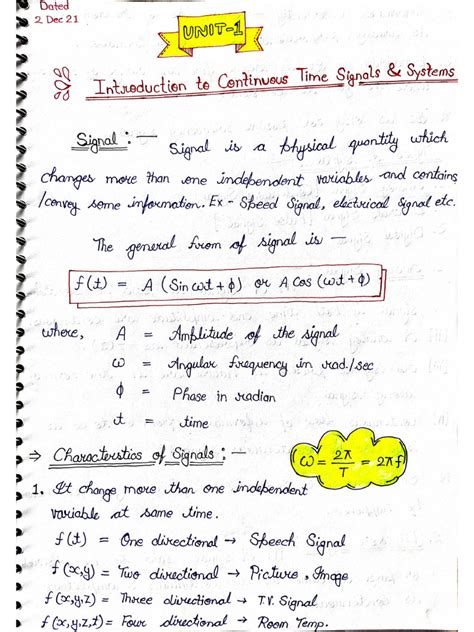 Dated
2 Dec 21
UNIT-1
Introduction to Continuous Time Signals & Systems
Signal :— Signal is a physical quantity which
changes more than one independent variables and contains
/convey some information. Ex - Speed Signal, electrical Signal etc.
The general from of signal is —
f(t) = A (Sin ωt + ϕ) or A Cos (ωt + ϕ)
where, A = Amplitude of the signal
ω = Angular frequency in rad./sec
ϕ = Phase in radian
t = time
⇒ Characterstics of Signals :—
ω = 2π/T = 2πf
1. It change more than one independent
variable at same time.
f(t) = One directional → Speech Signal
f(x,y) = Two directional → Picture, Image,
f(x,y,z) = Three directional → T.V. Signal
f(x,y,z,t) = Four directional → Room Temp.